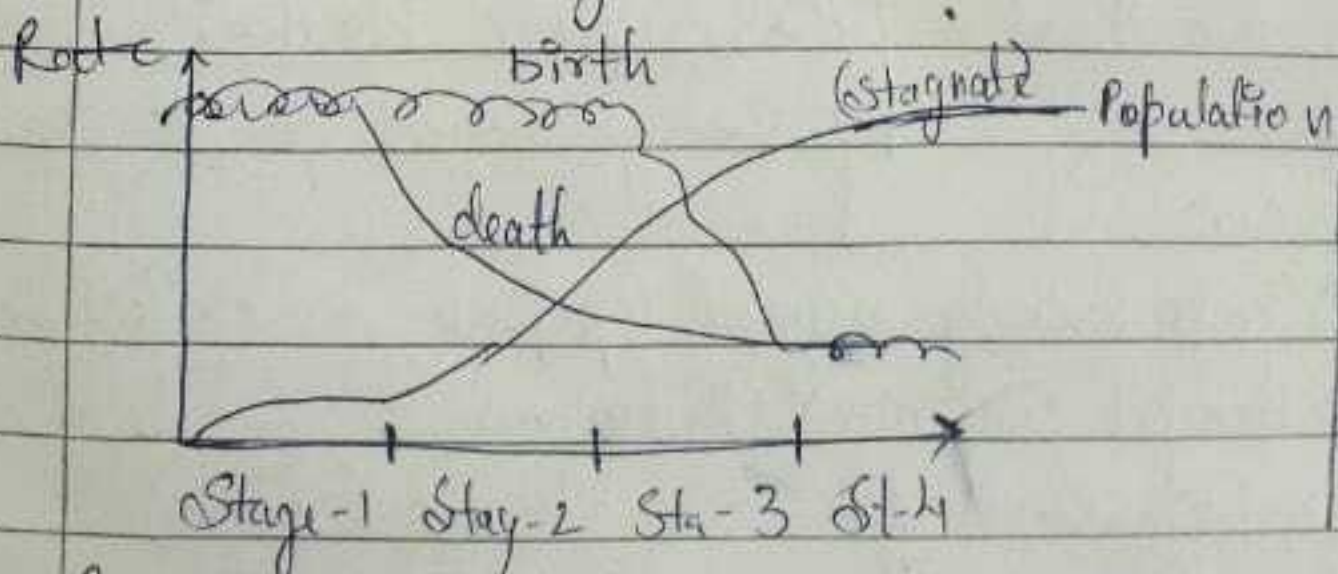 Rate
birth
(Stagnate)
Population
death
Stage-1 Stag-2 Sta-3 St-4